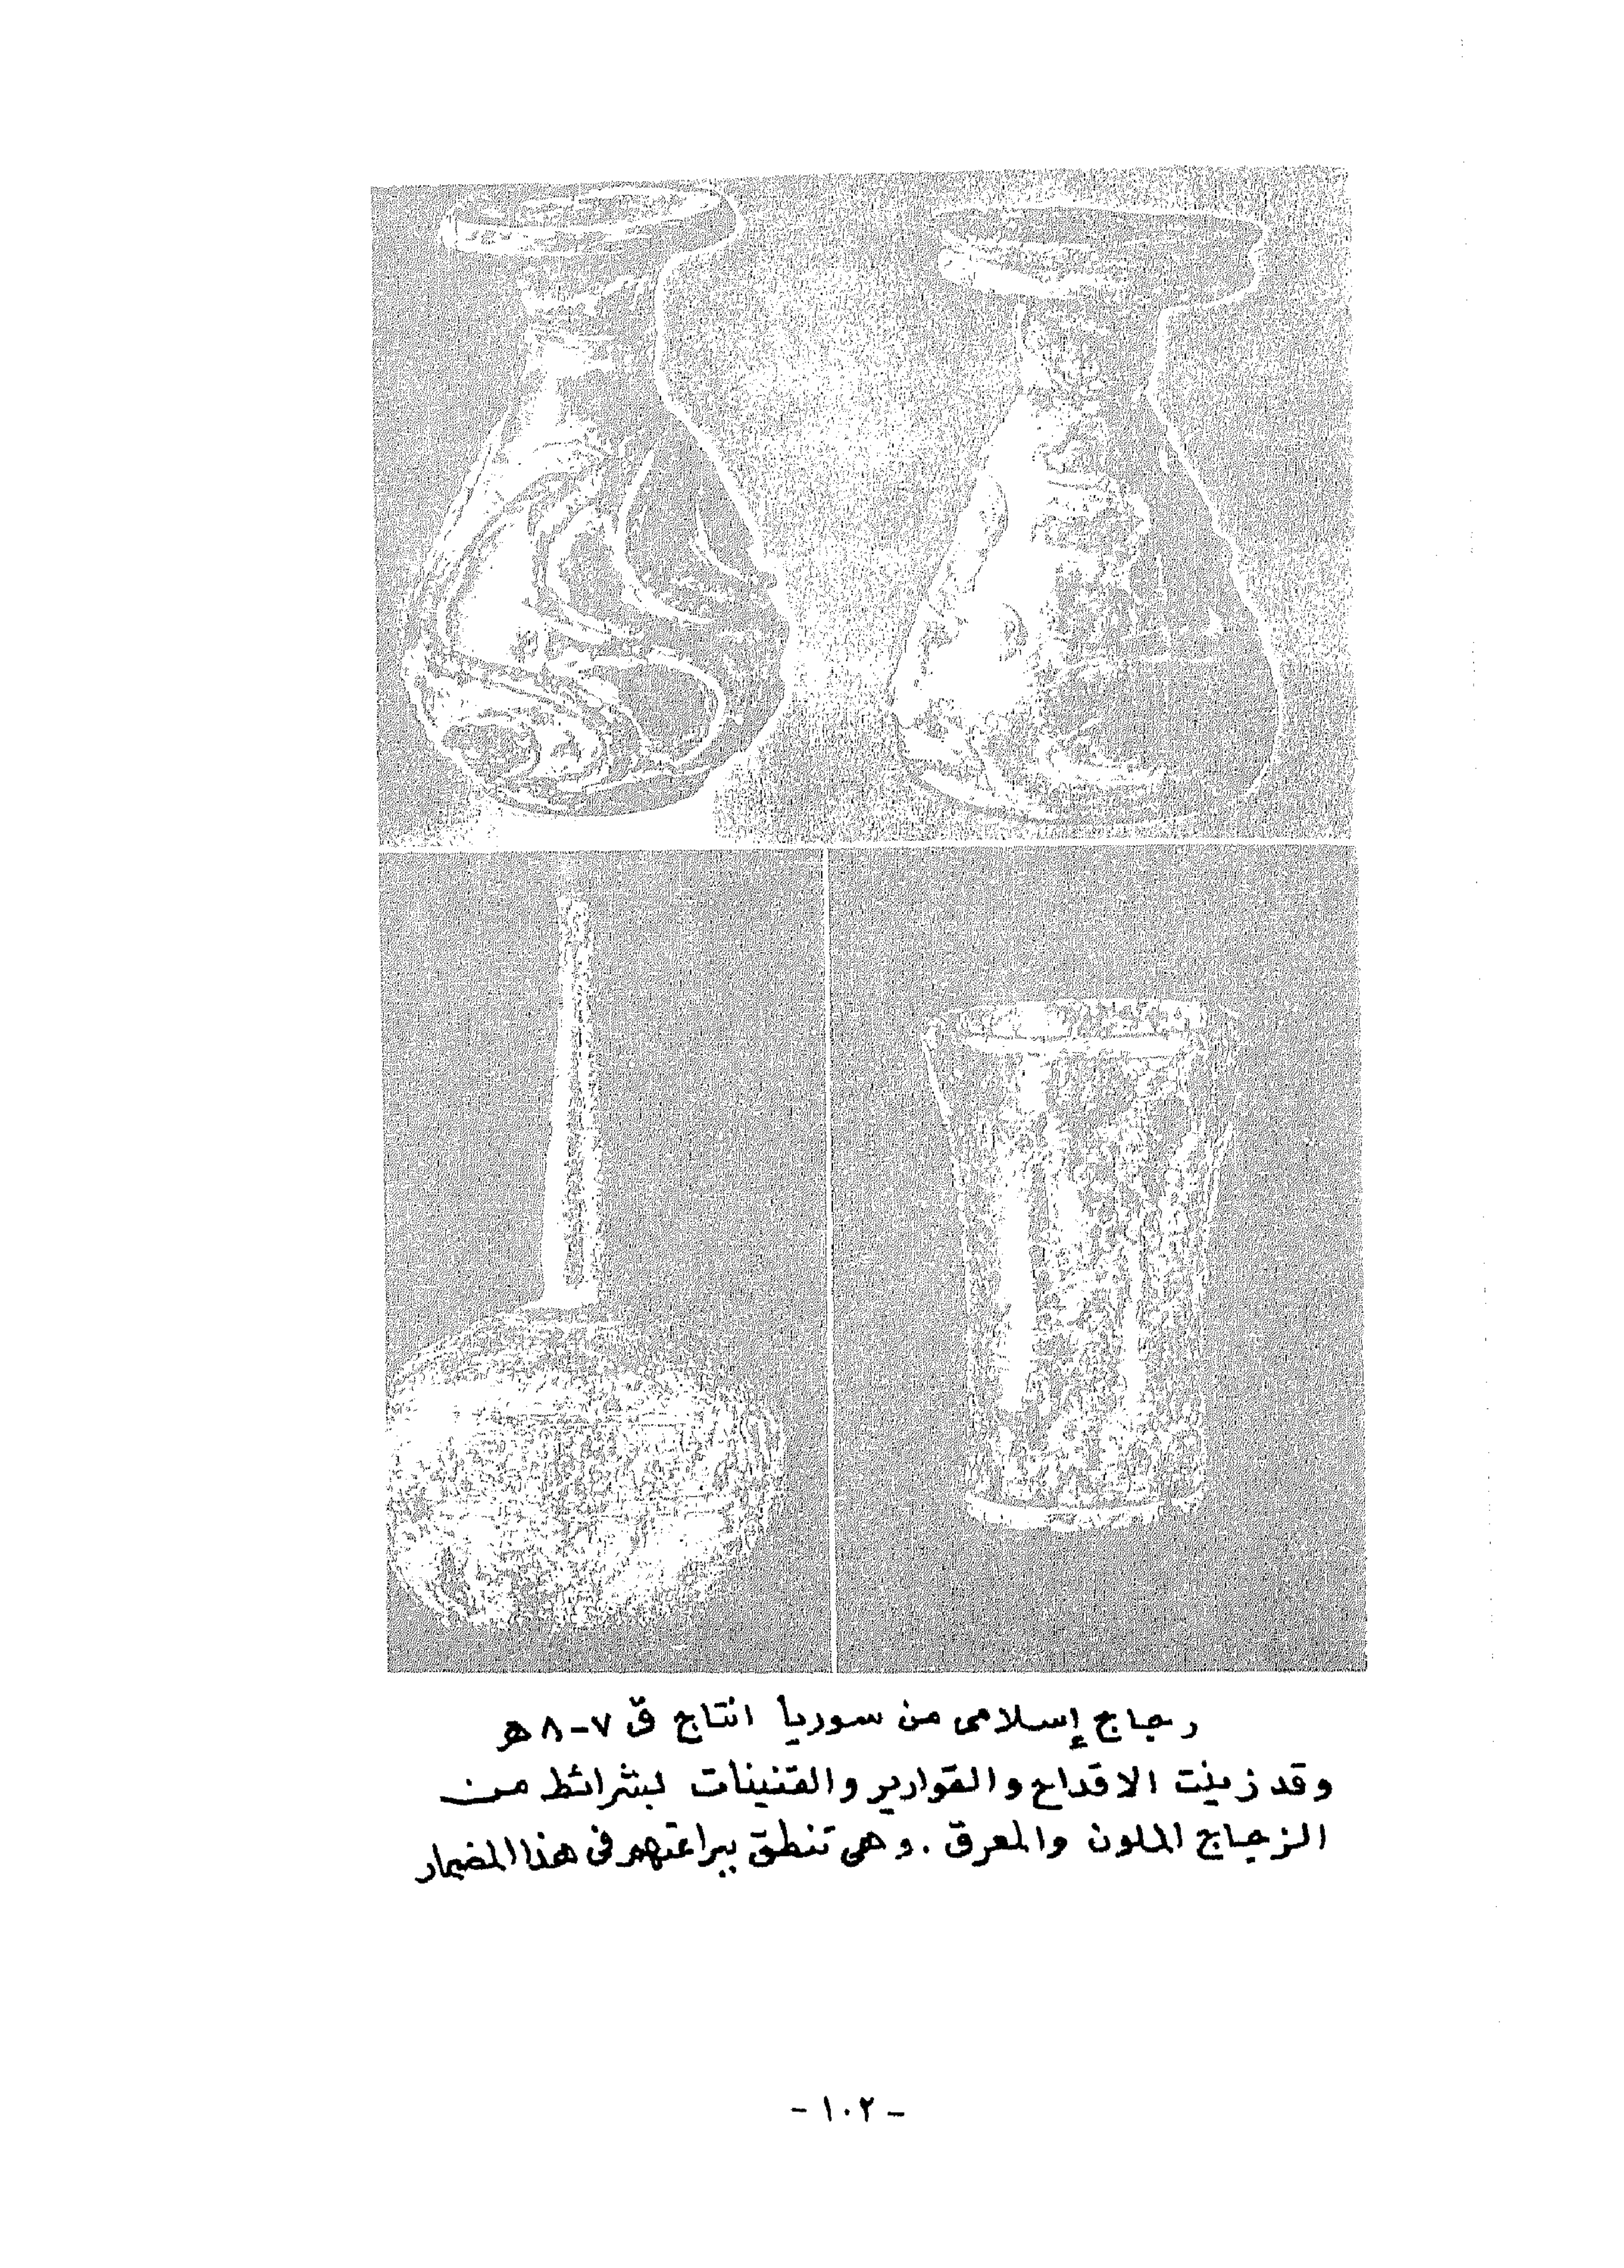 رجاج إسلامى من سوريا انتاج ق ٧-٨ هـ
وقد زينت الاقداح والقوارير والقنينات بشرائط من
الزجاج الملون والمعرق . وهى تنطق ببراعتهم فى هذا المضمار
- ١٠٢ -